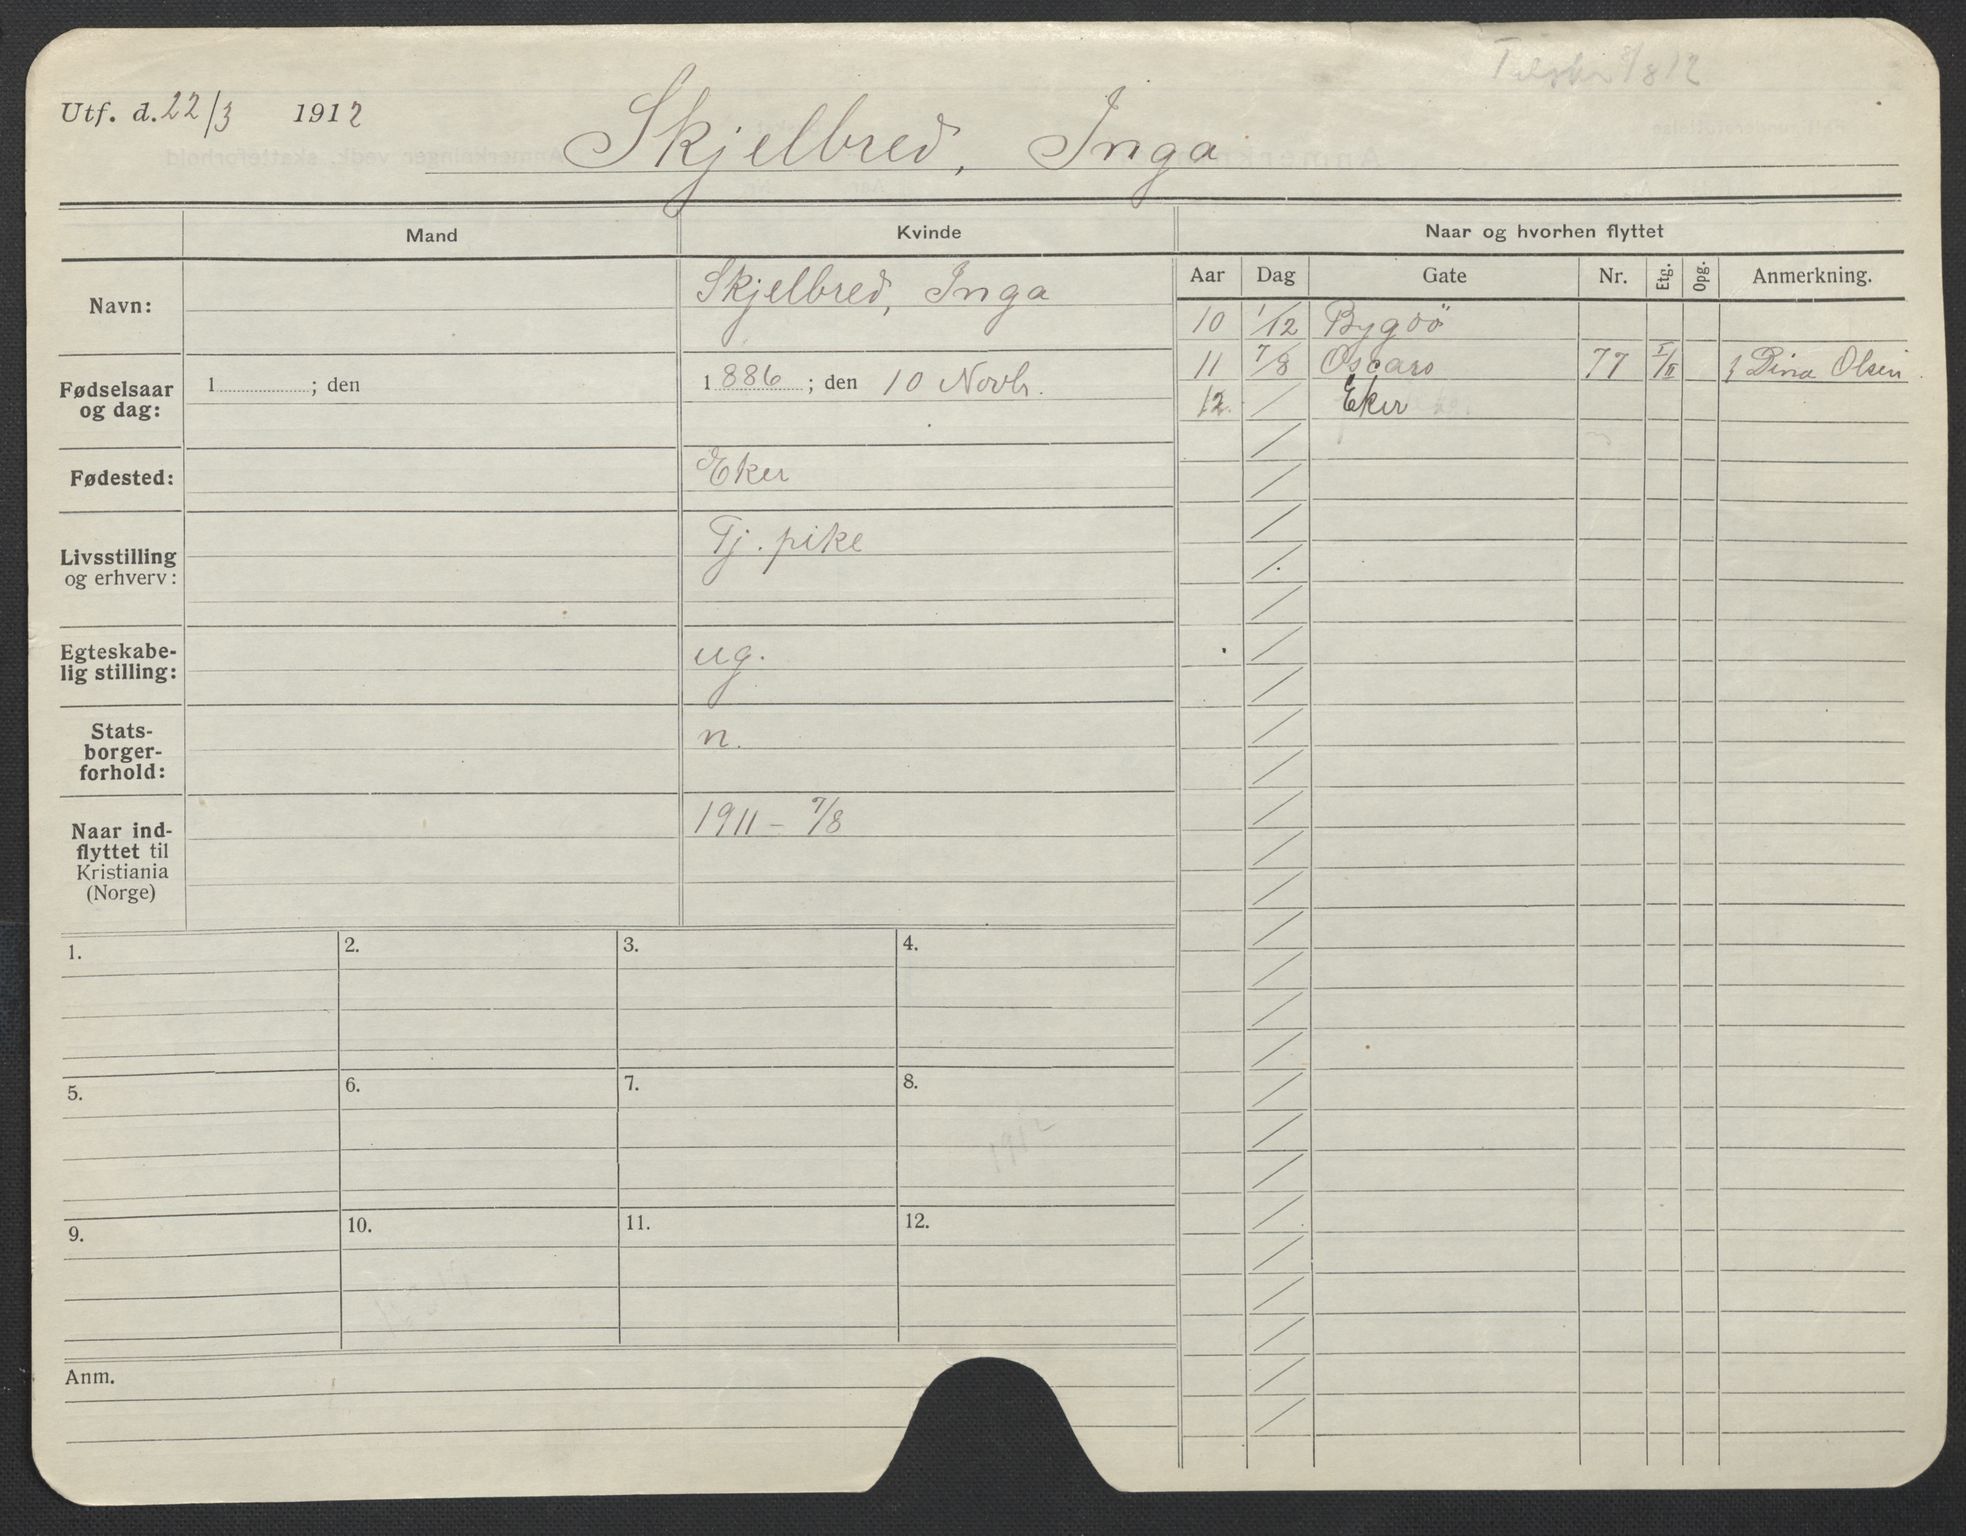 Utf. d. 22/3 1912
Skjelbred, Inga
Mand
Kvinde
Naar og hvorhen flyttet
Aar Dag Gate Nr. Etg. Opg. Anmerkning.
Navn:
Skjelbred, Inga
10 1/12 Bygdö
11 7/8 Oscars 77 I/II Dina Olsen
12. / Eker
Fødselsaar
og dag:
1 ; den
1886 ; den 10 Novbr.
Fødested:
Eker
Livsstilling
og erhverv:
Tj. pike
Egteskabe-
lig stilling:
ug.
Stats-
borger-
forhold:
n.
Naar ind-
flyttet til
Kristiania
(Norge)
1911 – 7/8
1. 2. 3. 4.
5. 6. 7. 8.
1912
9. 10. 11. 12.
Anm.